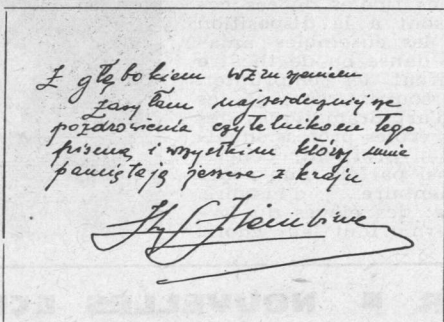 Z głębokiem wzruszeniem
zasyłam najserdeczniejsze
pozdrowienia czytelnikom tego
pisma, i wszystkim którzy mnie
pamiętają jeszcze z kraju